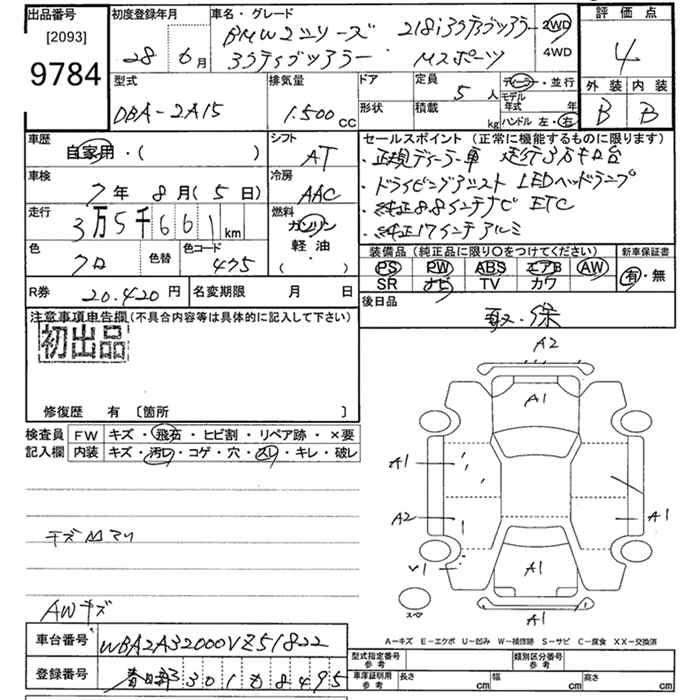 出品番号
[2093]
9784
初度登録年月
28年 6月
車名・グレード
BMW2シリーズ 218iアクティブツアラー
アクティブツアラー Mスポーツ
2WD
4WD
評価点
4
外装 内装
B B
型式
DBA-2A15
排気量
1.500cc
ドア
形状
定員
5人
積載
kg
ディーラー・並行
モデル
年式 年
ハンドル 左・右
車歴
自家用・( )
車検
7年 8月(5日)
走行
3万5千661km
色
クロ
色替
色コード
475
シフト
AT
冷房
AAC
燃料
ガソリン
軽油
( )
セールスポイント(正常に機能するものに限ります)
・正規ディーラー車 走行3万キロ台
・ドライビングアシスト LEDヘッドランプ
・純正8.8インチナビ ETC
・純正17インチアルミ
装備品(純正品に限り○をつけてください)
PS PW ABS エアB AW
SR ナビ TV カワ
新車保証書
有・無
R券
20.420円
名変期限 月 日
後日品
取・保
注意事項申告欄(不具合内容等は具体的に記入して下さい)
初出品
修復歴 有 〔箇所 〕
検査員
記入欄
FW キズ・飛石・ヒビ割・リペア跡・×要
内装 キズ・汚レ・コゲ・穴・スレ・キレ・破レ
キズ凹アリ
AWキズ
A2
A1
A1
A2
A1
V1
A1
A1
スペア
A-キズ E-エクボ U-凹み W-補修跡 S-サビ C-腐食 XX-交換済
車台番号
WBA2A32000VZ51822
登録番号
春日部 301 も 8495
型式指定番号
参考
類別区分番号
参考
車庫証明用
参考
長さ cm
幅 cm
高さ cm